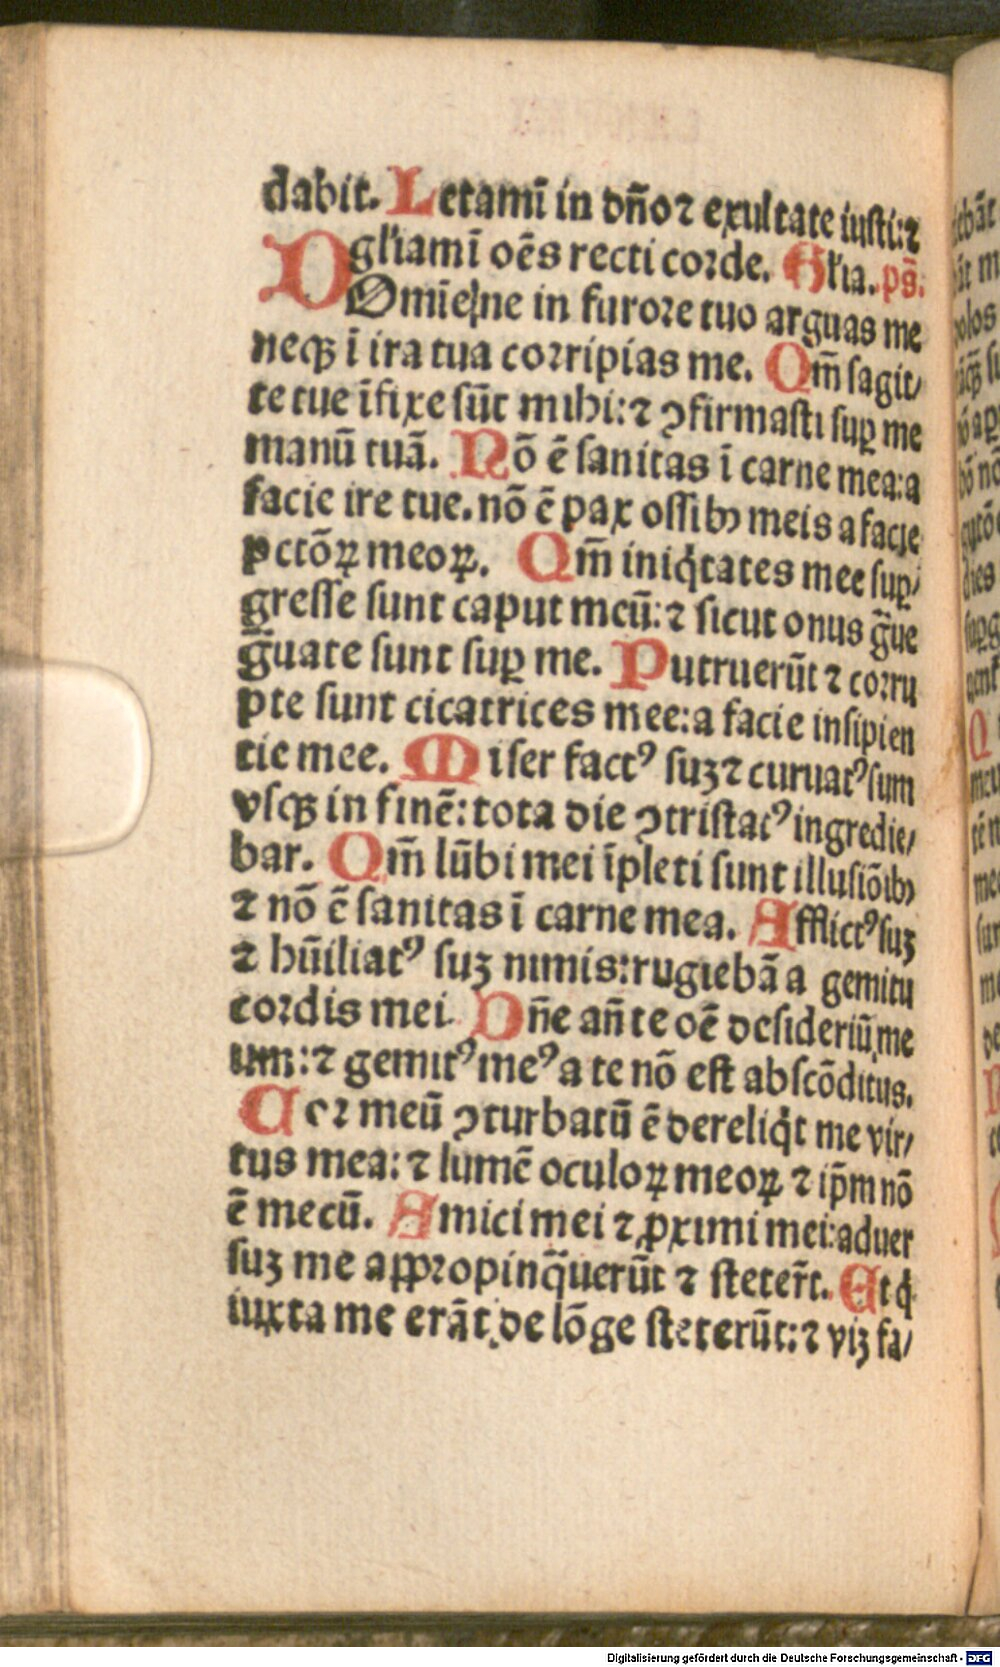 dabit. Letamī in dn̄o ⁊ exultate iusti: ⁊
gl'iamī oēs recti corde. Gl'ia. ps̄:
DOmīe ne in furore tuo arguas me
neqꝫ ī ira tua corripias me. Qm̄ sagit/
te tue īfixe sūt mihi: ⁊ ꝯfirmasti suꝑ me
manū tuā. Nō ē sanitas ī carne mea: a
facie ire tue. nō ē pax ossibꝫ meis a facie
pctōꝝ meoꝝ. Qm̄ iniq̇tates mee suꝑ/
gresse sunt caput meū: ⁊ sicut onus g̃ue
g̃uate sunt suꝑ me. Putruerūt ⁊ corru
pte sunt cicatrices mee: a facie insipien
tie mee. Miser factꝰ suꝫ ⁊ curuatꝰ sum
vsqꝫ in finē: tota die ꝯtristatꝰ ingredie/
bar. Qm̄ lūbi mei īpleti sunt illusiōibꝫ
⁊ nō ē sanitas ī carne mea. Afflictꝰ suꝫ
⁊ hūiliatꝰ suꝫ nimis: rugiebā a gemitu
cordis mei. Dn̄e an̄ te oē desideriū me
um: ⁊ gemitꝰ meꝰ a te nō est abscōditus.
Cor meū ꝯturbatū ē dereliq̇t me vir/
tus mea: ⁊ lumē oculoꝝ meoꝝ ⁊ ip̄m nō
ē mecū. Amici mei ⁊ ꝓximi mei: aduer
suꝫ me aꝓpropinq̃uerūt ⁊ steter̄t. Et q̇
iuxta me erāt de lōge steterūt: ⁊ viꝫ fa/
Digitalisierung gefördert durch die Deutsche Forschungsgemeinschaft - DFG